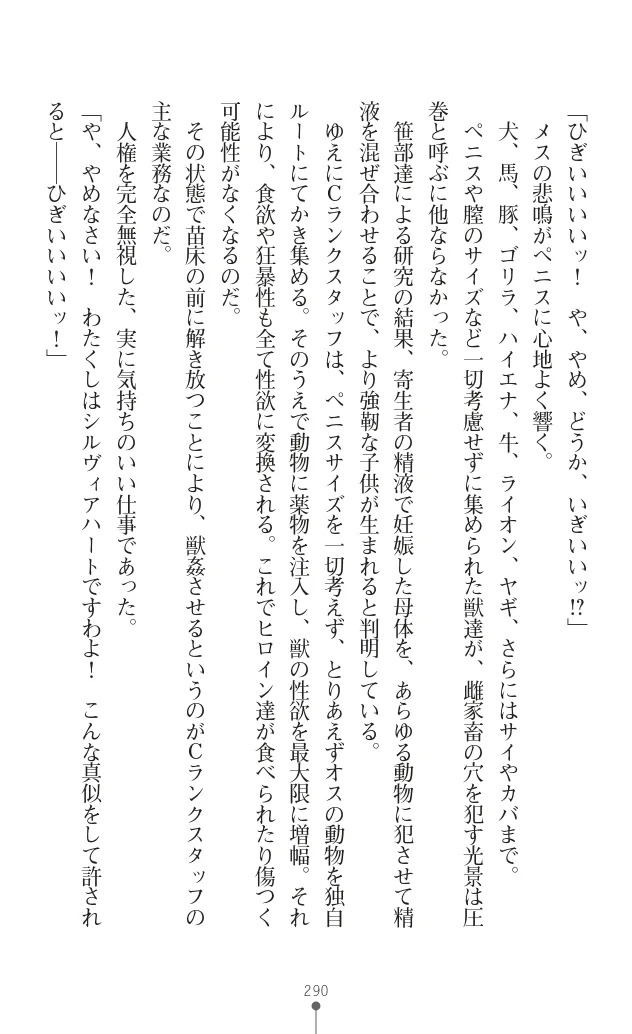 「ひぎいいいいッ!　や、やめ、どうか、いぎいいッ!?」
　メスの悲鳴がペニスに心地よく響く。
　犬、馬、豚、ゴリラ、ハイエナ、牛、ライオン、ヤギ、さらにはサイやカバまで。
　ペニスや膣のサイズなど一切考慮せずに集められた獣達が、雌家畜の穴を犯す光景は圧
巻と呼ぶに他ならなかった。
　笹部達による研究の結果、寄生者の精液で妊娠した母体を、あらゆる動物に犯させて精
液を混ぜ合わせることで、より強靭な子供が生まれると判明している。
　ゆえにCランクスタッフは、ペニスサイズを一切考えず、とりあえずオスの動物を独自
ルートにてかき集める。そのうえで動物に薬物を注入し、獣の性欲を最大限に増幅。それ
により、食欲や狂暴性も全て性欲に変換される。これでヒロイン達が食べられたり傷つく
可能性がなくなるのだ。
　その状態で苗床の前に解き放つことにより、獣姦させるというのがCランクスタッフの
主な業務なのだ。
　人権を完全無視した、実に気持ちのいい仕事であった。
「や、やめなさい!　わたくしはシルヴィアハートですわよ!　こんな真似をして許され
ると――ひぎいいいいッ!」
290